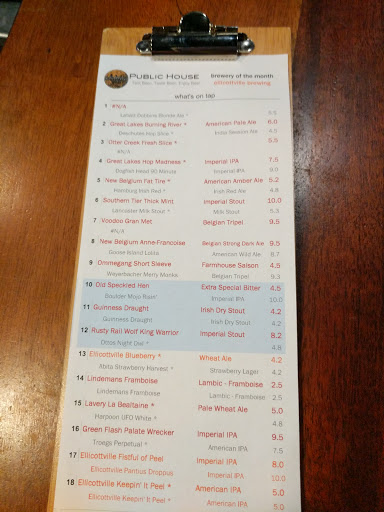 PUBLIC HOUSE
brewery of the month
ellicottville brewing
what's on tap
1 #N/A
4.5
2 Great Lakes Burning River * American Pale Ale 6.0
Deschutes Hop Slice * India Session Ale 4.5
3 Otter Creek Fresh Slice * 5.5
#N/A
4 Great Lakes Hop Madness * Imperial IPA 7.5
Dogfish Head 90 Minute Imperial IPA 9.0
5 New Belgium Fat Tire * American Amber Ale 5.2
Hamburg Irish Red * Irish Red Ale 4.8
6 Southern Tier Thick Mint Imperial Stout 10.0
Lancaster Milk Stout * Milk Stout 5.3
7 Voodoo Gran Met Belgian Tripel 9.5
#N/A
8 New Belgium Anne-Francoise Belgian Strong Dark Ale 9.5
Goose Island Lolita American Wild Ale 8.7
9 Ommegang Short Sleeve Farmhouse Saison 4.5
Weyerbacher Merry Monks Belgian Tripel 9.3
10 Old Speckled Hen Extra Special Bitter 4.5
Boulder Mojo Risin' Imperial IPA 10.0
11 Guinness Draught Irish Dry Stout 4.2
Guinness Draught Irish Dry Stout 4.2
12 Rusty Rail Wolf King Warrior Imperial Stout 8.2
4.8
13 Ellicottville Blueberry * Wheat Ale 4.2
Abita Strawberry Harvest * Strawberry Lager 4.2
14 Lindemans Framboise Lambic - Framboise 2.5
Lindemans Framboise Lambic - Framboise 2.5
15 Lavery La Bealtaine * Pale Wheat Ale 5.0
Harpoon UFO White * 4.8
16 Green Flash Palate Wrecker Imperial IPA 9.5
Troegs Perpetual * American IPA 7.5
17 Ellicottville Fistful of Peel Imperial IPA 8.0
Ellicottville Pantius Droppus Imperial IPA 10.0
18 Ellicottville Keepin' It Peel * American IPA 5.0
Ellicottville Keepin' It Peel * American IPA 5.0